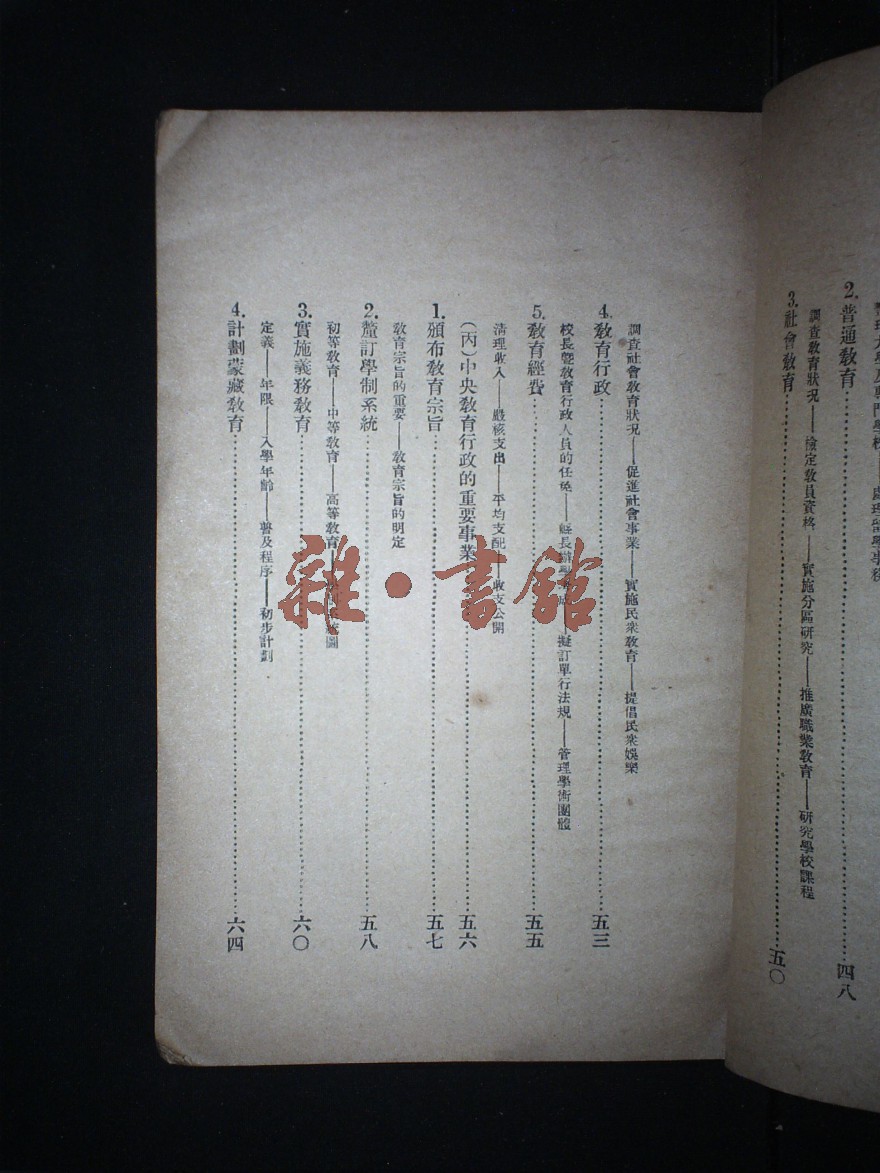 管理大學及專門學校——處理留學事務
2.普通教育……四八
調查教育狀況——檢定教員資格——實施分區研究——推廣職業教育——研究學校課程
3.社會教育……五〇
調查社會教育狀況——促進社會事業——實施民衆教育——提倡民衆娛樂
4.教育行政……五三
校長暨教育行政人員的任免——縣長辦學考成——擬訂單行法規——管理學術團體
5.教育經費……五五
清理收入——嚴核支出——平均支配——收支公開
(丙)中央教育行政的重要事業……五六
1.頒布教育宗旨……五七
教育宗旨的重要——教育宗旨的明定
2.釐訂學制系統……五八
初等教育——中等教育——高等教育——系統圖
3.實施義務教育……六〇
定義——年限——入學年齡——普及程序——初步計劃
4.計劃蒙藏教育……六四
雜·書館